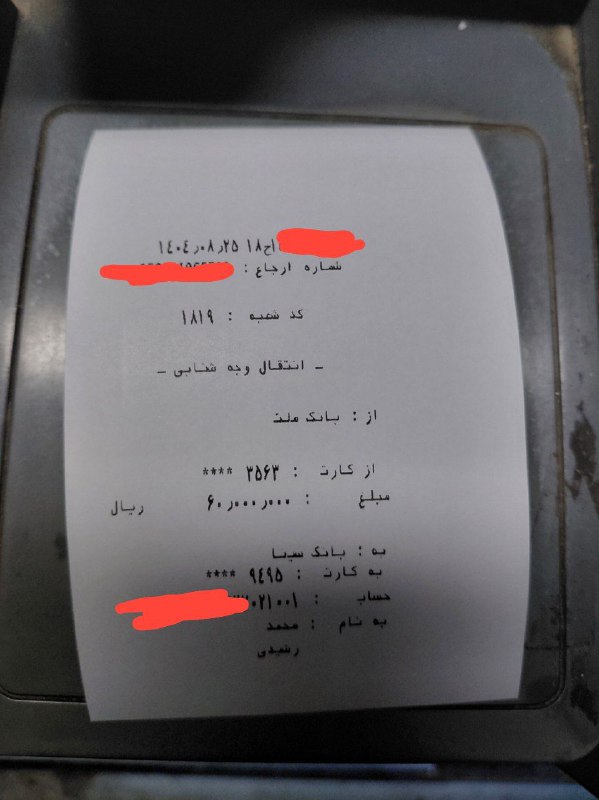 ۱۴۰۴٫۰۸٫۲۵ ۱۸
شماره ارجاع :
کد شعبه : ۱۸۱۹
_ انتقال وجه شتابی _
از : بانک ملت
از کارت : ۳۵۶۳ ****
مبلغ : ۶۰٫۰۰۰٫۰۰۰ ریال
به : بانک سینا
به کارت : ۹۴۹۵ ****
حساب :
به نام : محمد
رشیدی